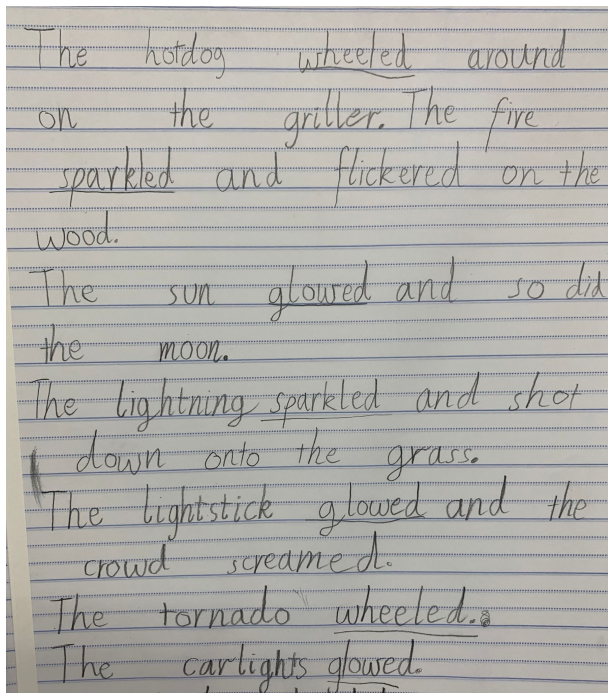 The hotdog wheeled around
on the griller. The fire
sparkled and flickered on the
wood.
The sun glowed and so did
the moon.
The lightning sparkled and shot
down onto the grass.
The lightstick glowed and the
crowd screamed.
The tornado wheeled.
The carlights glowed.